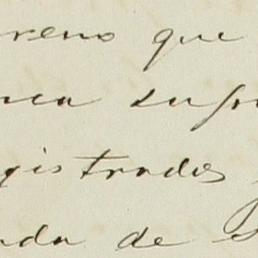 reno que
nca
gistrados
nda de